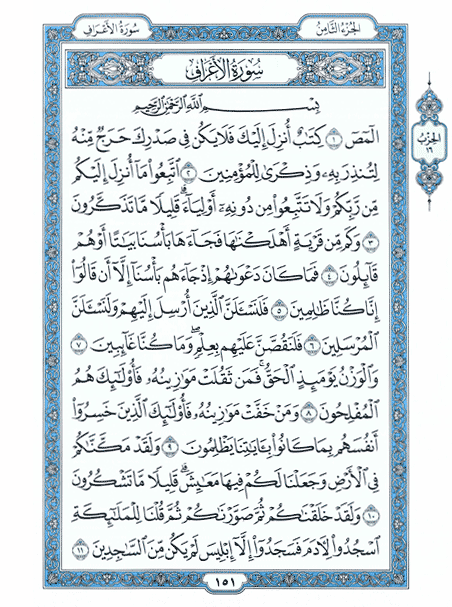 سُورَةُ الأَعْرَافِ
الجُزْءُ الثَّامِنُ
سُورَةُ الأَعْرَافِ
بِسْمِ اللَّهِ الرَّحْمَٰنِ الرَّحِيمِ
الٓمٓصٓ ١ كِتَٰبٌ أُنزِلَ إِلَيْكَ فَلَا يَكُن فِي صَدْرِكَ حَرَجٌ مِّنْهُ
لِتُنذِرَ بِهِۦ وَذِكْرَىٰ لِلْمُؤْمِنِينَ ٢ ٱتَّبِعُوا۟ مَآ أُنزِلَ إِلَيْكُم
مِّن رَّبِّكُمْ وَلَا تَتَّبِعُوا۟ مِن دُونِهِۦٓ أَوْلِيَآءَ ۗ قَلِيلًا مَّا تَذَكَّرُونَ
٣ وَكَم مِّن قَرْيَةٍ أَهْلَكْنَٰهَا فَجَآءَهَا بَأْسُنَا بَيَٰتًا أَوْ هُمْ
قَآئِلُونَ ٤ فَمَا كَانَ دَعْوَىٰهُمْ إِذْ جَآءَهُم بَأْسُنَآ إِلَّآ أَن قَالُوٓا۟
إِنَّا كُنَّا ظَٰلِمِينَ ٥ فَلَنَسْـَٔلَنَّ ٱلَّذِينَ أُرْسِلَ إِلَيْهِمْ وَلَنَسْـَٔلَنَّ
ٱلْمُرْسَلِينَ ٦ فَلَنَقُصَّنَّ عَلَيْهِم بِعِلْمٍ ۖ وَمَا كُنَّا غَآئِبِينَ ٧
وَٱلْوَزْنُ يَوْمَئِذٍ ٱلْحَقُّ ۚ فَمَن ثَقُلَتْ مَوَٰزِينُهُۥ فَأُو۟لَٰٓئِكَ هُمُ
ٱلْمُفْلِحُونَ ٨ وَمَنْ خَفَّتْ مَوَٰزِينُهُۥ فَأُو۟لَٰٓئِكَ ٱلَّذِينَ خَسِرُوٓا۟
أَنفُسَهُم بِمَا كَانُوا۟ بِـَٔايَٰتِنَا يَظْلِمُونَ ٩ وَلَقَدْ مَكَّنَّٰكُمْ
فِي ٱلْأَرْضِ وَجَعَلْنَا لَكُمْ فِيهَا مَعَٰيِشَ ۗ قَلِيلًا مَّا تَشْكُرُونَ
١٠ وَلَقَدْ خَلَقْنَٰكُمْ ثُمَّ صَوَّرْنَٰكُمْ ثُمَّ قُلْنَا لِلْمَلَٰٓئِكَةِ
ٱسْجُدُوا۟ لِـَٔادَمَ فَسَجَدُوٓا۟ إِلَّآ إِبْلِيسَ لَمْ يَكُن مِّنَ ٱلسَّٰجِدِينَ ١١
الحِزْبُ
١٦
١٥١